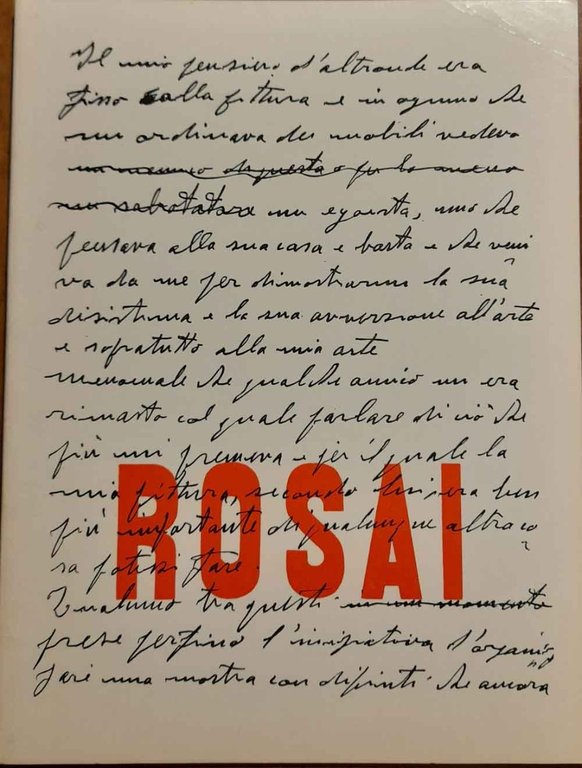 Il mio pensiero d'altronde era
fisso alla pittura e in ognuno che
mi ordinava dei mobili vedevo
un egoista, uno che
pensava alla sua casa e basta e che veni
va da me per dimostrarmi la sua
disistima e la sua avversione all'arte
e sopratutto alla mia arte
menomale che qualche amico mi era
rimasto col quale parlare di ciò che
più mi premeva e per il quale la
mia pittura, secondo lui era ben
più importante di qualunque altra co
sa potessi fare.
ROSAI
Qualcuno tra questi
prese perfino l'iniziativa d'organiz
zare una mostra con dipinti che ancora